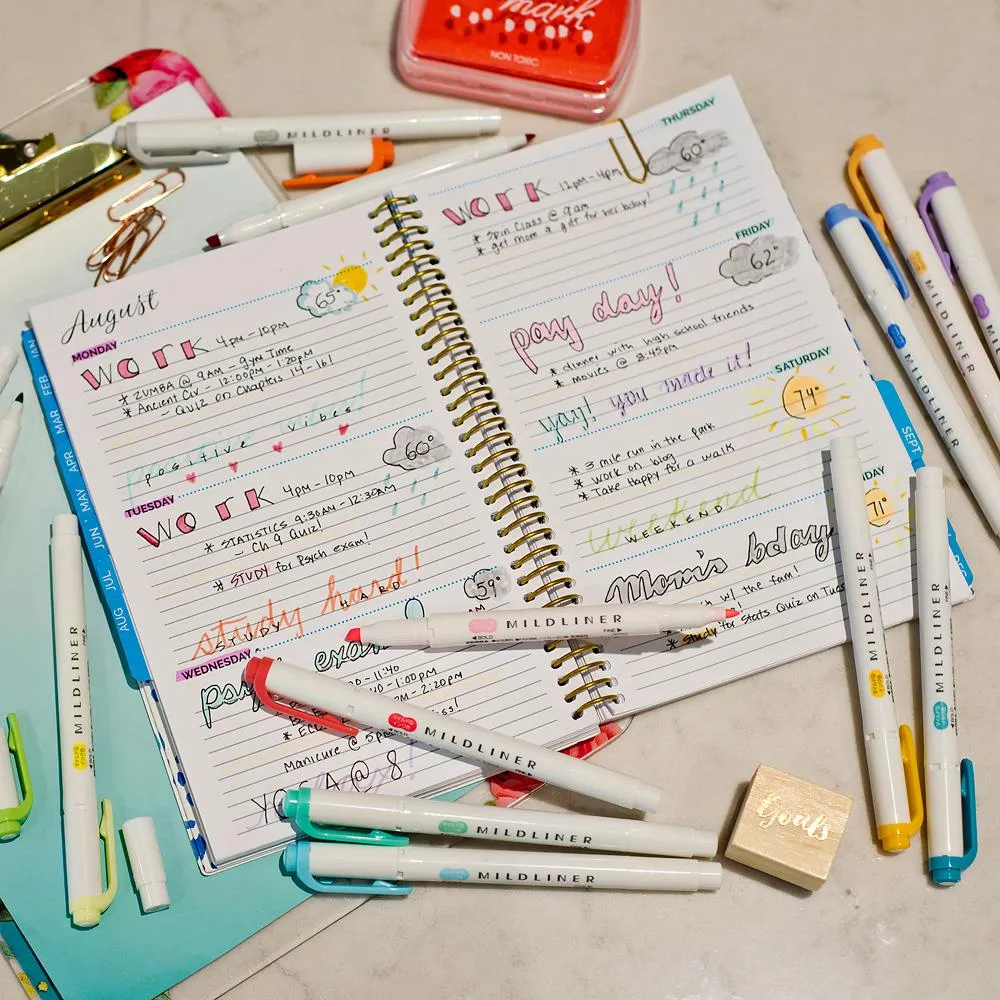 mark
NON TOXIC
MILDLINER
August
MONDAY
65°
WORK 4pm - 10pm
* ZUMBA @ 9AM - gym Time
* Ancient Civ - 12:00PM - 1:20PM
- QUIZ on Chapters 14-16!
positive vibes
TUESDAY
60°
WORK 4pm - 10pm
* STATISTICS 9:30AM - 12:30AM
- Ch 9 Quiz!
* STUDY for Psych exam!
study hard!
STUDY
WEDNESDAY
59°
Manicure @ 5pm
@ 8
JAN
FEB
MAR
APR
MAY
JUN
JUL
AUG
THURSDAY
60°
WORK 12pm - 4pm
* Spin Class @ 9am
* get mom a gift for her bday!
FRIDAY
62°
pay day!
* dinner with high school friends
* movies @ 8:45pm
yay! you made it!
SATURDAY
74°
* 3 mile run in the park
* work on blog
* Take Happy for a walk
weekend
WEEKEND
71°
Mom's bday
w/ the fam!
* Study for Stats Quiz on Tues
SEPT
DEC
MILDLINER
MILDLINER
MILDLINER
◄BOLD
FINE►
MILDLINER
MILDLINER
MILDLINER
MILDLINER
MILDLINER
MILDLINER
MILDLINER
Goals